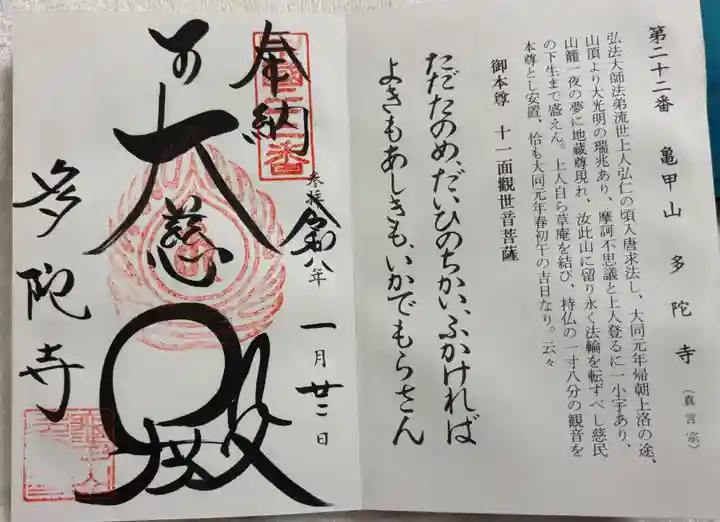 第二十二番　亀甲山　多陀寺　（真言宗）
弘法大師法弟流世上人弘仁の頃入唐求法し、大同元年帰朝上洛の途、
山頂より大光明の瑞兆あり、摩訶不思議と上人登るに一小宇あり、
山籠一夜の夢に地蔵尊現れ、汝此山に留り永く法輪を転ずべし慈民
の下生まで盛えん。上人自ら草庵を結び、持仏の一寸八分の観音を
本尊とし安置、恰も大同元年春初午の吉日なり。云々
御本尊　十一面観世音菩薩
ただたのめ、だいひのちかい、ふかければ
よきもあしきも、いかでもらさん
奉納
参拝 令和八年
一月廿二日
大慈殿
多陀寺